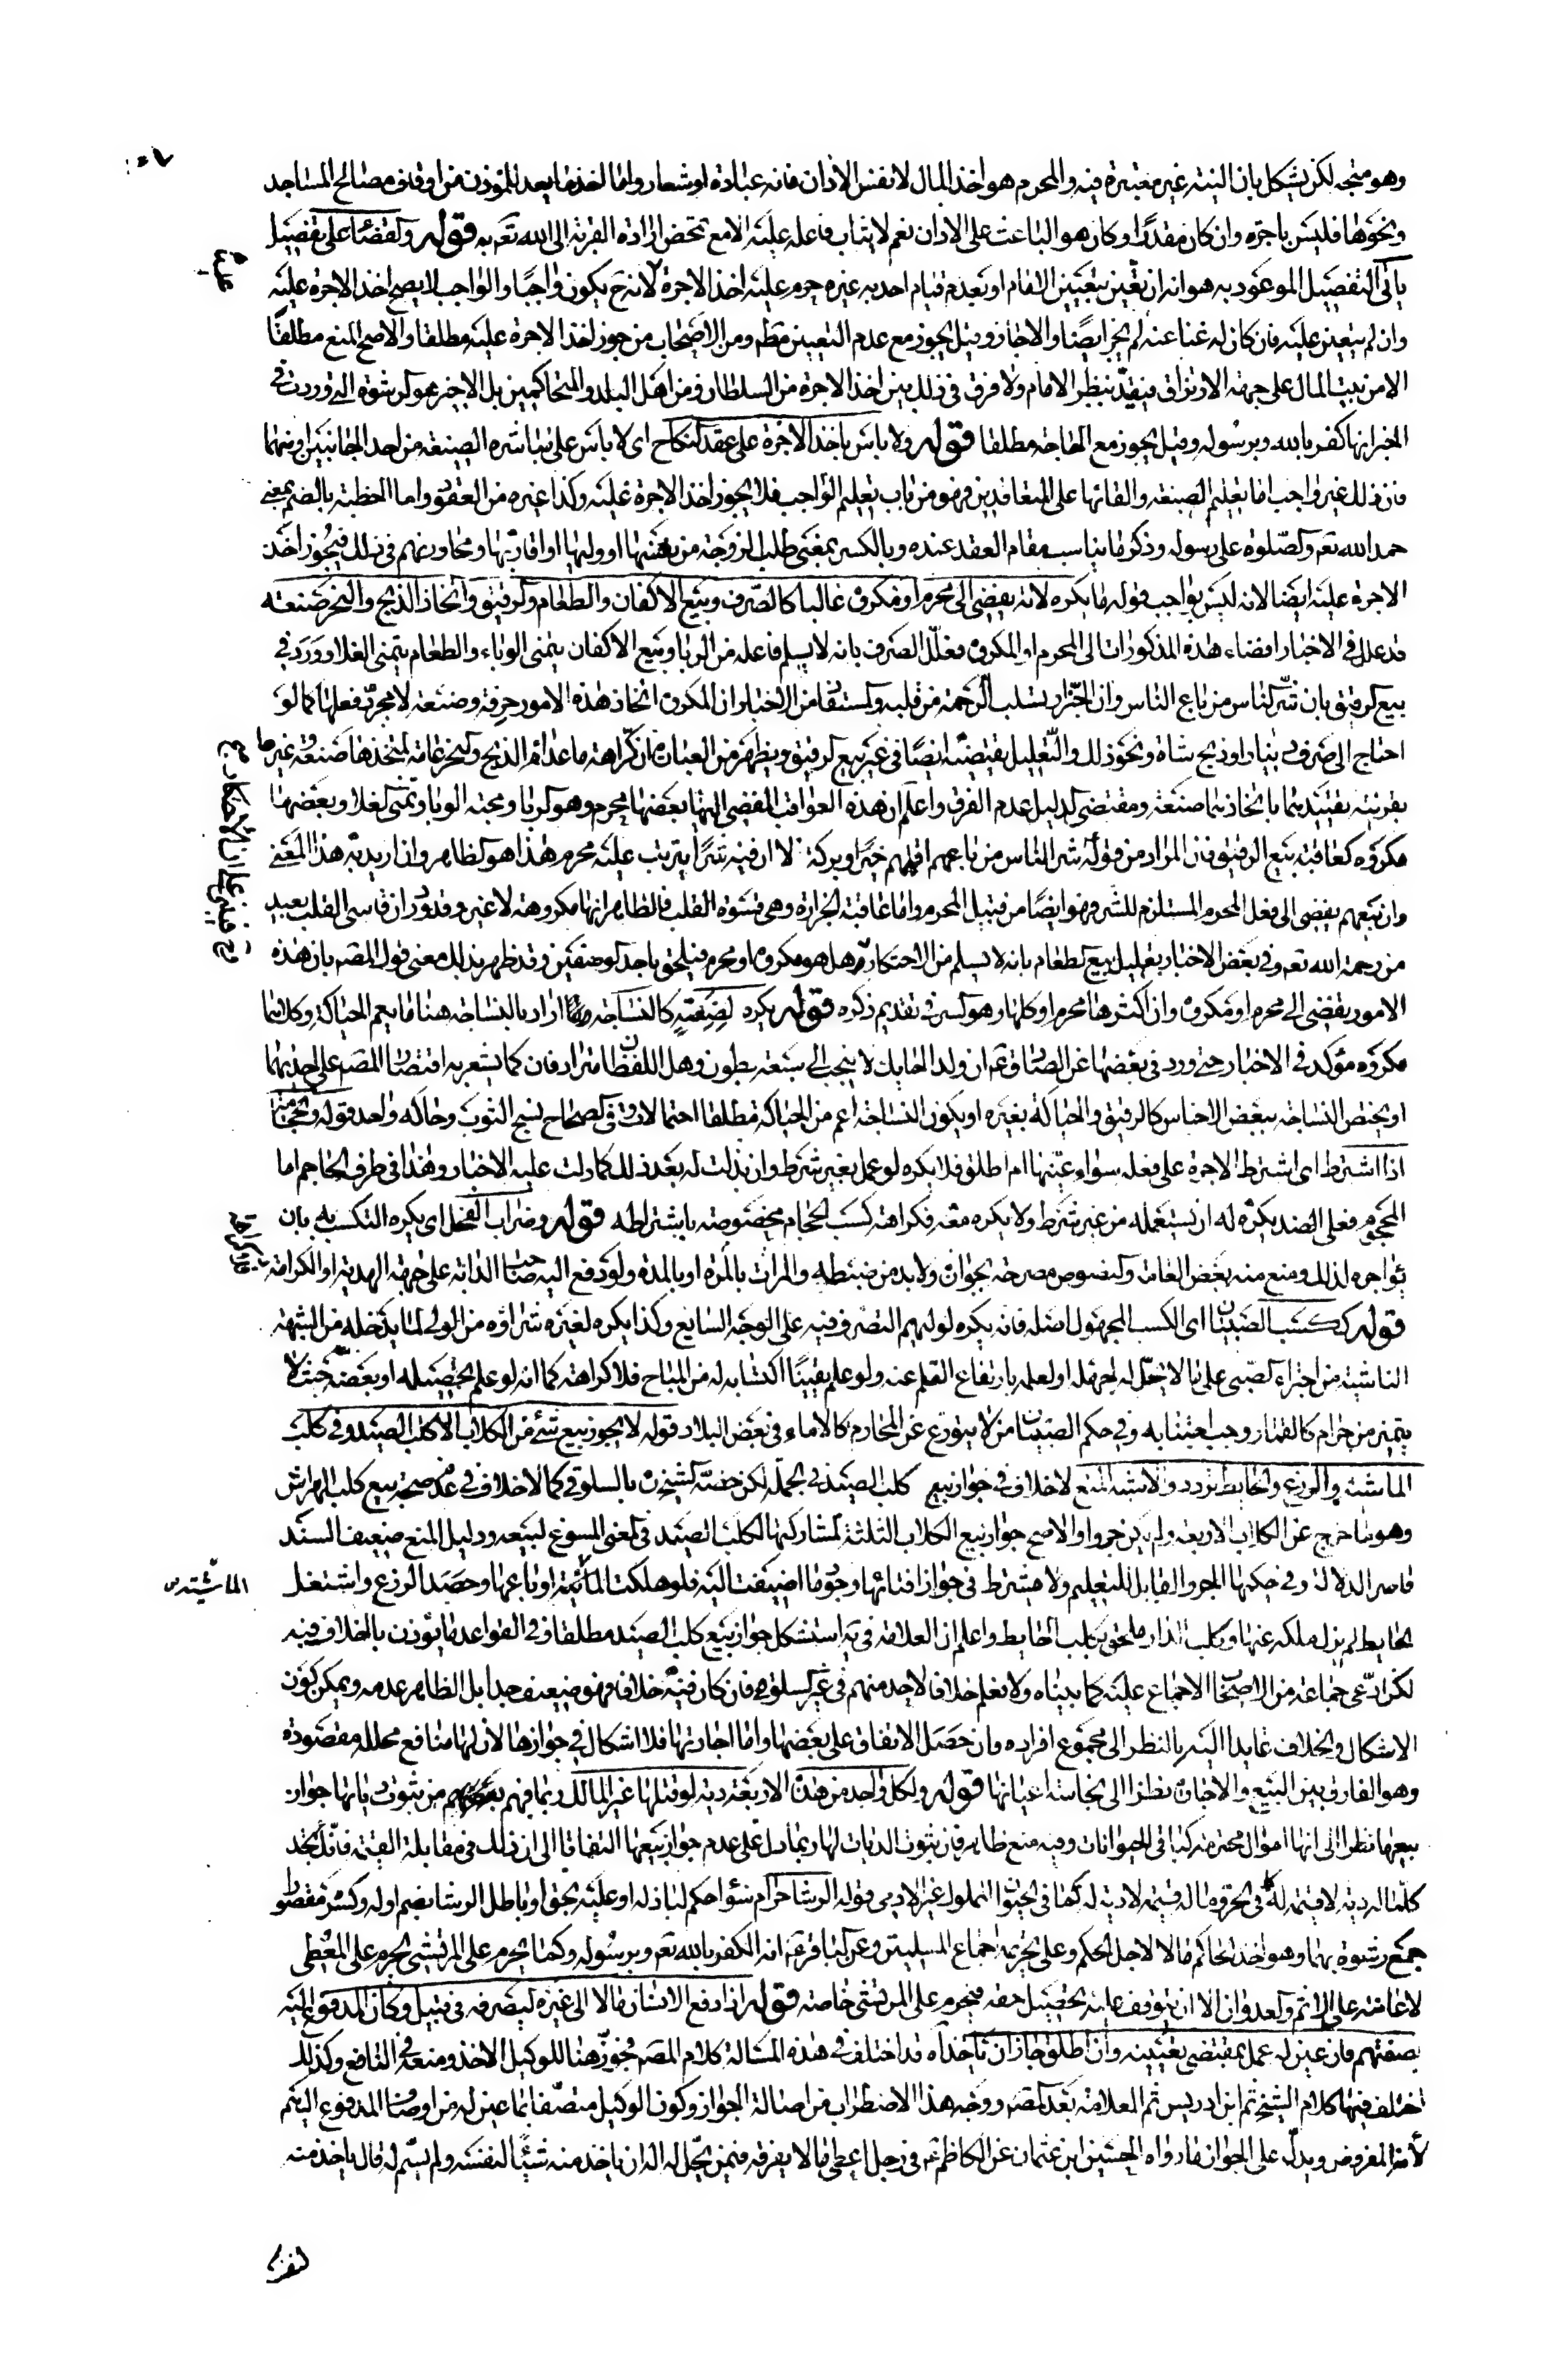 وهو متجه لكن يشكل بان النية غير معتبرة فيه والمحرم هو اخذ المال لا نفس الاذان فانه عبادة او شعار واما اخذ ما يعد للمؤذن من اوقاف مصالح المساجد
ونحوها فليس باجرة وان كان مقدرا وكان هو الباعث على الاذان نعم لا يثاب فاعله عليه الا مع تمحض ارادة القربة الى الله تعم به قوله والقضاء على تفصيل
ياتى التفصيل الموعود به هو انه ان تعين بتعيين الامام او بعدم قيام احد به غيره حرم عليه اخذ الاجرة لانه ح يكون واجبا والواجب لا يصح اخذ الاجرة عليه
وان لم يتعين عليه فان كان له غنا عنه لم يجز ايضا والا جاز وقيل يجوز مع عدم التعيين مطم ومن الاصحاب من جوز اخذ الاجرة عليه مطلقا والاصح المنع مطلقا
الا من بيت المال على جهة الارتزاق فيقيد بنظر الامام ولا فرق في ذلك بين اخذ الاجرة من السلطان ومن اهل البلد والمتحاكمين بل الاخير هو الرشوة التي وردت في
الخبر انها كفر بالله وبرسوله وقيل يجوز مع الحاجة مطلقا قوله ولا باس باخذ الاجرة على عقد النكاح اى لا باس على مباشرة الصيغة من احد الجانبين او منهما
فان ذلك غير واجب اما تعليم الصيغة والقائها على المتعاقدين فهو من باب تعليم الواجب فلا يجوز اخذ الاجرة عليه وكذا غيره من العقود واما الخطبة بالضم بمعنى
حمد الله تعم والصلوة على رسوله وذكر ما يناسب مقام العقد عنده وبالكسر بمعنى طلب الزوجة من نفسها او وليها او اقاربها ومحاورتهم في ذلك فيجوز اخذ
الاجرة عليه ايضا لانه ليس بواجب قوله ما يكره لانه يفضى الى محرم او مكروه غالبا كالصرف وبيع الاكفان والطعام والرقيق واتخاذ الذبح والنحر صنعة
قد علل في الاخبار افضاء هذه المذكورات الى المحرم او المكروه فعلل الصرف بانه لا يسلم فاعله من الربا وبيع الاكفان يتمنى الوباء والطعام يتمنى الغلا وورد في
بيع الرقيق بان شر الناس من باع الناس وان الجزار تسلب الرحمة من قلبه ويستفا من الاخبار ان المكروه اتخاذ هذه الامور حرفة وصنعة لا مجرد فعلها كما لو
احتاج الى صرف دينار او ذبح شاة ونحو ذلك والتعليل يقتضيه ايضا في غير بيع الرقيق ويظهر من العبارة ان كراهة ما عدا الذبح والنحر عامة لمتخذها صنعة وغيره
بقرينة تقييدهما باتخاذهما صنعة ومقتضى الدليل عدم الفرق واعلم ان هذه العواقب المفضى اليها بعضها محرم وهو الربا ومحبة الوبا وتمنى الغلا وبعضها
مكروه كعاقبة بيع الرقيق فان المراد من قوله شر الناس من باعهم اقلهم خيرا وبركة لا ان فيه شرا يترتب عليه محرم هذا هو الظاهر وان اريد به هذا المعنى
وان بيعهم يفضى الى فعل المحرم المستلزم للشر فهو ايضا من قبيل المحرم واما عاقبة الجزارة وهى قسوة القلب فالظاهر انها مكروهة لا غير وقد ورد ان قاسى القلب بعيد
من رحمة الله تعم وفي بعض الاخبار تعليل بيع الطعام بانه لا يسلم من الاحتكار وهل هو مكروه او محرم فيلحق باحد الوصفين وقد ظهر بذلك معنى قول المصه بان هذه
الامور يفضى الى محرم او مكروه وان اكثرها محرم او كلها وهو السر في تقديم ذكره قوله يكره لضعته كالنساجة اراد بالنساجة هنا ما يعم الحياكة وكلاهما
مكروه مؤكد في الاخبار حتى ورد في بعضها عن الصادق عم ان ولد الحايك لا ينجب الى سبعة بطون وهل اللفظان مترادفان كما يشعر به اقتصار المصه على احديهما
او يختص النساجة ببعض الاجناس كالرقيق والحياكة بغيره او يكون النساجة اعم من الحياكة مطلقا احتمالات في الصحاح نسج الثوب وحاكه واحد قوله والحجامة
اذا اشترط اى اشترط الاجرة على فعله سواء عينها ام اطلق فلا يكره لو عمل بغير شرط وان بذلت له بعد ذلك كما دلت عليه الاخبار وهذا في طرف الحاجم اما
المحجوم فعلى الضد يكره له ان يستعمله من غير شرط ولا يكره معه فكراهة كسب الحجام مخصوصة باشتراطه قوله وضراب الفحل اى يكره التكسب به بان
يؤاجره لذلك ومنع منه بعض العامة والنصوص مصرحة بجوازه ولا بد من ضبطه والمراة بالمرة او بالمدة ولو دفع اليه صاحب الدابة على جهة الهدية او الكرامة
قوله ككسب الصبيان اى الكسب المجهول اصله فانه يكره لوليهم التصرف فيه على الوجه السايغ وكذا يكره لغيره شراؤه من الولى لما يدخله من الشبهة
الناشئة من اجتراء الصبى على ما لا يحل له لجهله او لعلمه بارتفاع القلم عنه ولو علم يقينا اكتسابه له من المباح فلا كراهة كما انه لو علم تحصيله او بعضه حيث لا
يتميز من حرام كالقمار وجب اجتنابه وفي حكم الصبيان من لا يتورع عن المحارم كالاماء في بعض البلاد قوله لا يجوز بيع شئ من الكلاب الا كلب الصيد وفي كلب
الماشية والزرع والحايط تردد والاشبه المنع لا خلاف في جواز بيع كلب الصيد في الجملة لكن خصه الشيخ ره بالسلوقى كما لا خلاف في عدم صحة بيع كلب الهراش
وهو ما خرج عن الكلاب الاربعة ولم يكن جروا والاصح جواز بيع الكلاب الثلثة لمشاركتها لكلب الصيد في المعنى المسوغ لبيعه ودليل المنع ضعيف السند
قاصر الدلالة وفي حكمها الجرو القابل للتعليم ولا يشترط في جواز اقتنائها وجود ما اضيفت اليه فلو هلكت الماشية او باعها او حصد الزرع واشتغل
الحايط لم يزل ملكه عنها وكلب الدار ملحق بكلب الحايط واعلم ان العلامة في يه استشكل جواز بيع كلب الصيد مطلقا وفي القواعد ما يؤذن بالخلاف فيه
لكن ادعى جماعة من الاصحاب الاجماع عليه كما بيناه ولا نعلم خلافا لاحد منهم في غير السلوقى فان كان فيه خلاف فهو ضعيف جدا بل الظاهر عدمه ويمكن كون
الاشكال والخلاف عايدا اليه بالنظر الى مجموع افراده وان حصل الاتفاق على بعضها واما اجارتها فلا اشكال في جوازها لان لها منافع محللة مقصودة
وهو الفارق بين البيع والاجارة نظرا الى نجاسة اعيانها قوله ولكل واحد من هذه الاربعة دية لو قتلها غير المالك ربما فهم بعضهم من ثبوت دياتها جواز
بيعها نظرا الى انها اموال محترمة كباقى الحيوانات وفيه منع ظاهر فان ثبوت الديات لها ربما دل على عدم جواز بيعها التفاتا الى ان ذلك في مقابلة القيمة فانا نجد
كلما له دية لا قيمة له كما في الحر وما له قيمة لا دية له كما في الحيوان المملوك غير الادمى قوله الرشا حرام سواء حكم لباذله او عليه بحق او باطل الرشا بضم اوله وكسره مقصورا
جمع رشوة بهما وهو اخذ الحاكم مالا لاجل الحكم وعلى تحريمه اجماع المسلمين وعن الباقر عم انه الكفر بالله تعم وبرسوله وكما يحرم على المرتشى يحرم على المعطى
لاعانته على الاثم والعدوان الا ان يتوقف عليه تحصيل حقه فيحرم على المرتشى خاصة قوله اذا دفع الانسان مالا الى غيره ليصرفه في قبيل وكان المدفوع اليه
بصفتهم فان عين له عمل بمقتضى تعيينه وان اطلق جاز ان ياخذ اه قد اختلف في هذه المسالة كلام المصه فجوز هنا للوكيل الاخذ ومنعه في النافع وكذلك
اختلف فيها كلام الشيخ ثم ابن ادريس ثم العلامة بعد المصه ووجه هذا الاضطراب من اصالة الجواز وكون الوكيل متصفا بما عين له من اوصاف المدفوع اليهم
لانه المفروض ويدل على الجواز ما رواه الحسين بن عثمان عن الكاظم عم في رجل اعطى مالا يفرقه فيمن يحل له اله ان ياخذ منه شيئا لنفسه ولم يسم له قال ياخذ منه
الماشية س
لنفسه